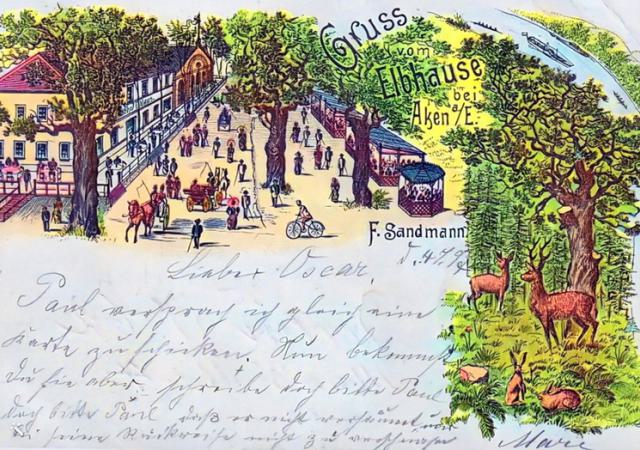 Gruss
vom
Elbhause
bei
Aken a/E.
F. Sandmann
Lieber Oscar, d. 4/7. 97
Paul versprach ich gleich eine
Karte zu schicken. Nun bekommst
Du sie aber schreibe doch bitte Paul
doch bitte Paul daß er nicht versäumt
seine Rückreise nicht zu
Marie